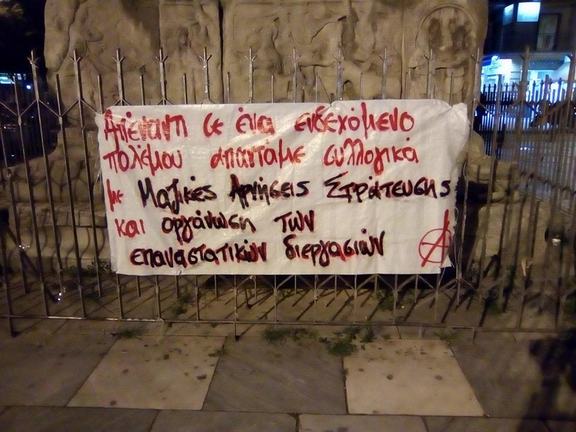 Απέναντι σε ένα ενδεχόμενο
πολέμου απαντάμε συλλογικά
με Μαζικές Αρνήσεις Στράτευσης
και οργάνωση των
επαναστατικών διεργασιών